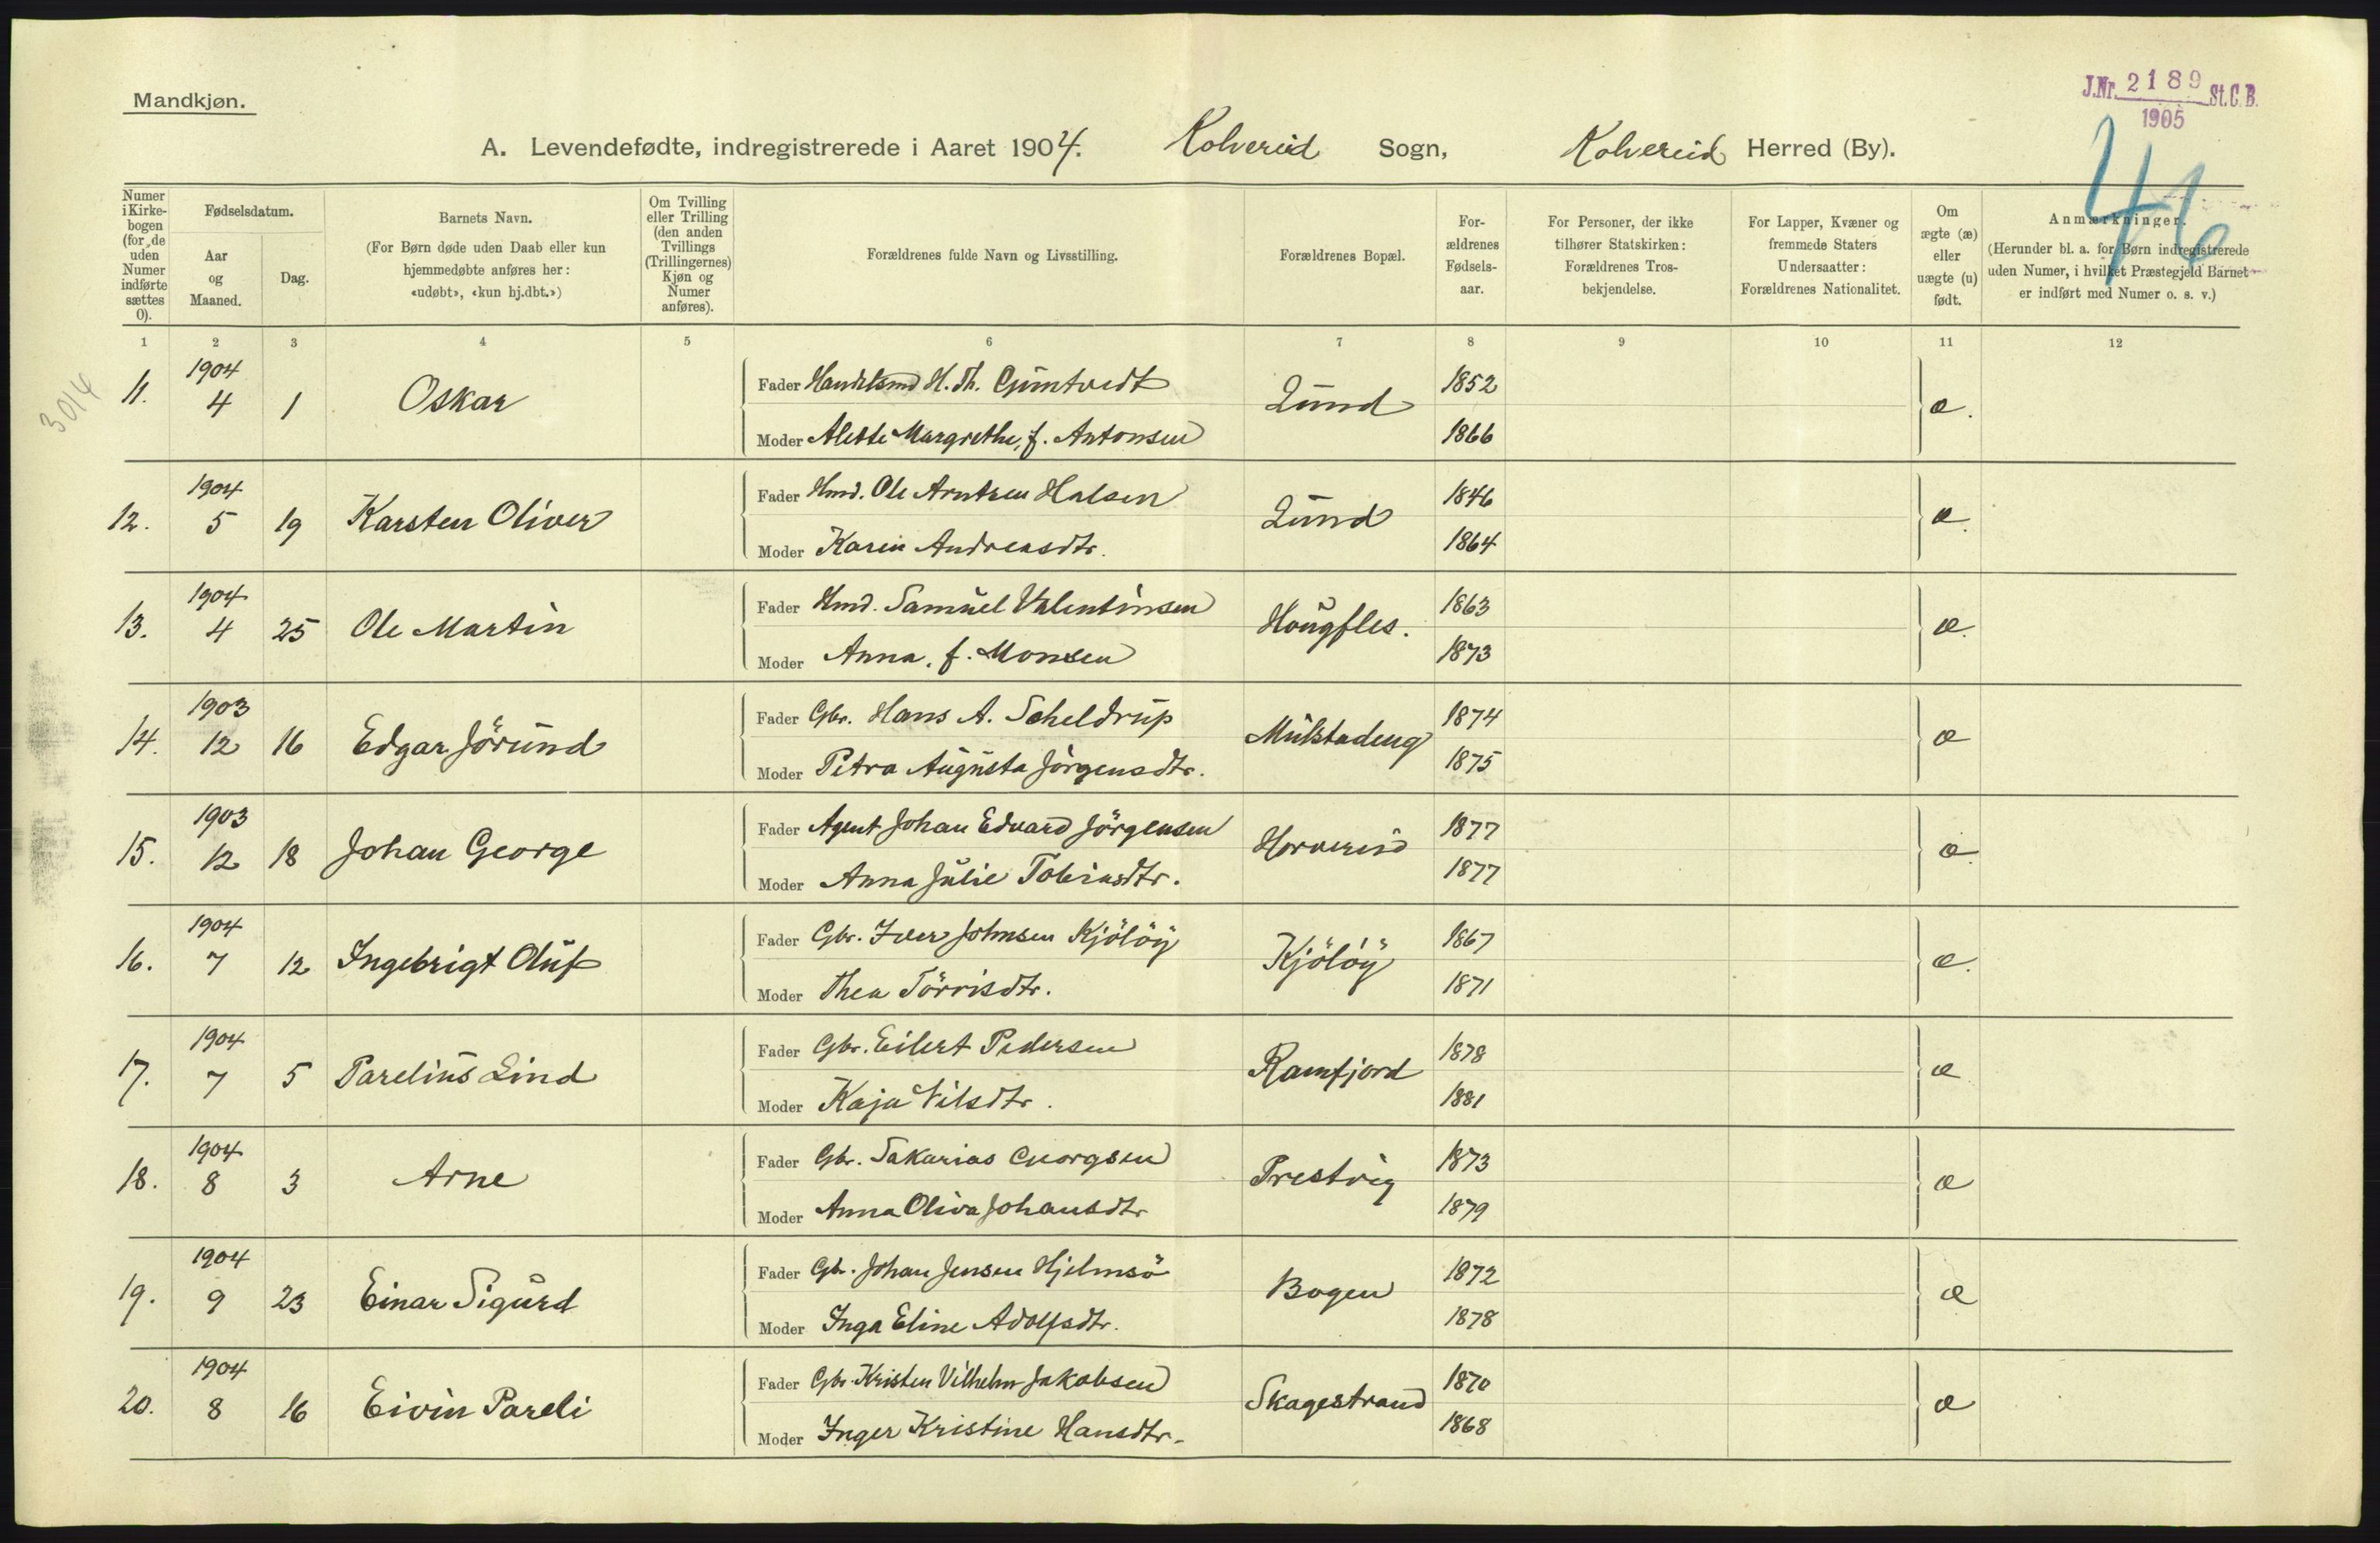 J.Nr. 2189 St.C.B.
1905
46
Mandkjøn.
A. Levendefødte, indregistrerede i Aaret 1904. Kolvereid Sogn, Kolvereid Herred (By).
Numer i Kirkebogen (for de uden Numer indførte sættes 0).
Fødselsdatum.
Aar og Maaned.
Dag.
Barnets Navn.
(For Børn døde uden Daab eller kun hjemmedøbte anføres her: «udøbt», «kun hj.dbt.»)
Om Tvilling eller Trilling (den anden Tvillings (Trillingernes) Kjøn og Numer anføres).
Forældrenes fulde Navn og Livsstilling.
Forældrenes Bopæl.
Forældrenes Fødselsaar.
For Personer, der ikke tilhører Statskirken: Forældrenes Trosbekjendelse.
For Lapper, Kvæner og fremmede Staters Undersaatter: Forældrenes Nationalitet.
Om ægte (æ) eller uægte (u) født.
Anmærkninger.
(Herunder bl. a. for Børn indregistrerede uden Numer, i hvilket Præstegjeld Barnet er indført med Numer o. s. v.)
1 2 3 4 5 6 7 8 9 10 11 12
3014
1904
11. 4 1 Oskar
Fader Handelsmd H. Th. Gjüntvedt Lund 1852 æ.
Moder Alette Margrethe, f. Antonsen 1866
1904
12. 5 19 Karsten Oliver
Fader Hmd. Ole Arntzen Halsen Lund 1846 æ.
Moder Karin Andreasdtr. 1864
1904
13. 4 25 Ole Martin
Fader Hmd. Samuel Valentinsen Hougfles. 1863 æ.
Moder Anna, f. Monsen 1873
1903
14. 12 16 Edgar Jörund
Fader Gbr. Hans A. Scheldrup Mulstadeng 1874 æ
Moder Petra Augusta Jörgensdtr. 1875
1903
15. 12 18 Johan George
Fader Agent Johan Edvard Jörgensen Horvereid 1877 æ.
Moder Anna Julie Tobiasdtr. 1877
1904
16. 7 12 Ingebrigt Oluf
Fader Gbr. Iver Johnsen Kjölöy Kjölöy 1867 æ.
Moder Thea Törrisdtr. 1871
1904
17. 7 5 Parelius Lind
Fader Gbr. Eilert Pedersen Ramfjord 1878 æ
Moder Kaja Nilsdtr. 1881
1904
18. 8 3 Arne
Fader Gbr. Sakarias Georgsen Prestvig 1873 æ
Moder Anna Oliva Johansdtr 1879
1904
19. 9 23 Einar Sigurd
Fader Gbr. Johan Jensen Hjelmsö Bogen 1872 æ
Moder Inga Eline Adolfsdtr. 1878
1904
20. 8 16 Eivin Pareli
Fader Gbr. Kristen Vilhelm Jakobsen Skagestrand 1870 æ
Moder Inger Kristine Hansdtr. 1868